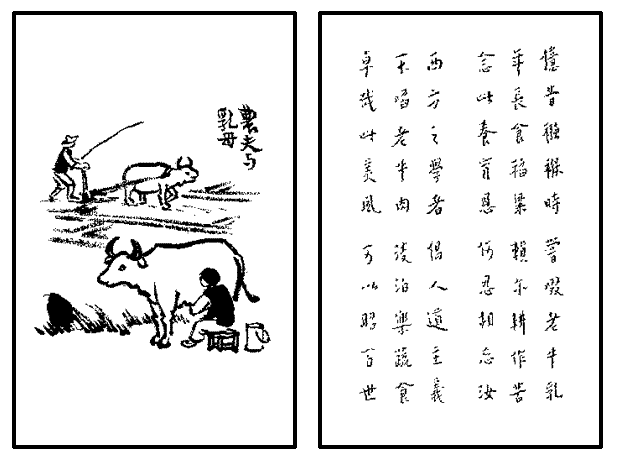 農夫与
乳母
憶昔襁褓時 嘗啜老牛乳
年長食稻粱 賴尔耕作苦
念此養育恩 何忍相忘汝
西方之學者 倡人道主義
不啗老牛肉 淡泊樂蔬食
卓哉此美風 可以昭百世